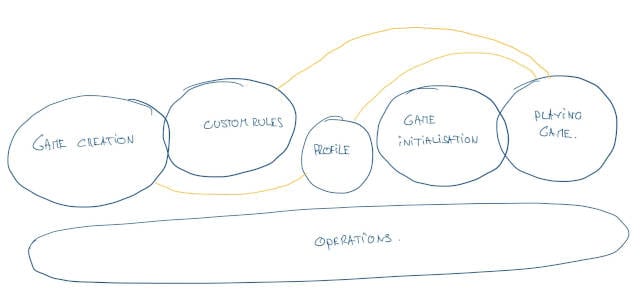 GAME CREATION
CUSTOM RULES
PROFILE
GAME
INITIALISATION
PLAYING
GAME.
OPERATIONS.